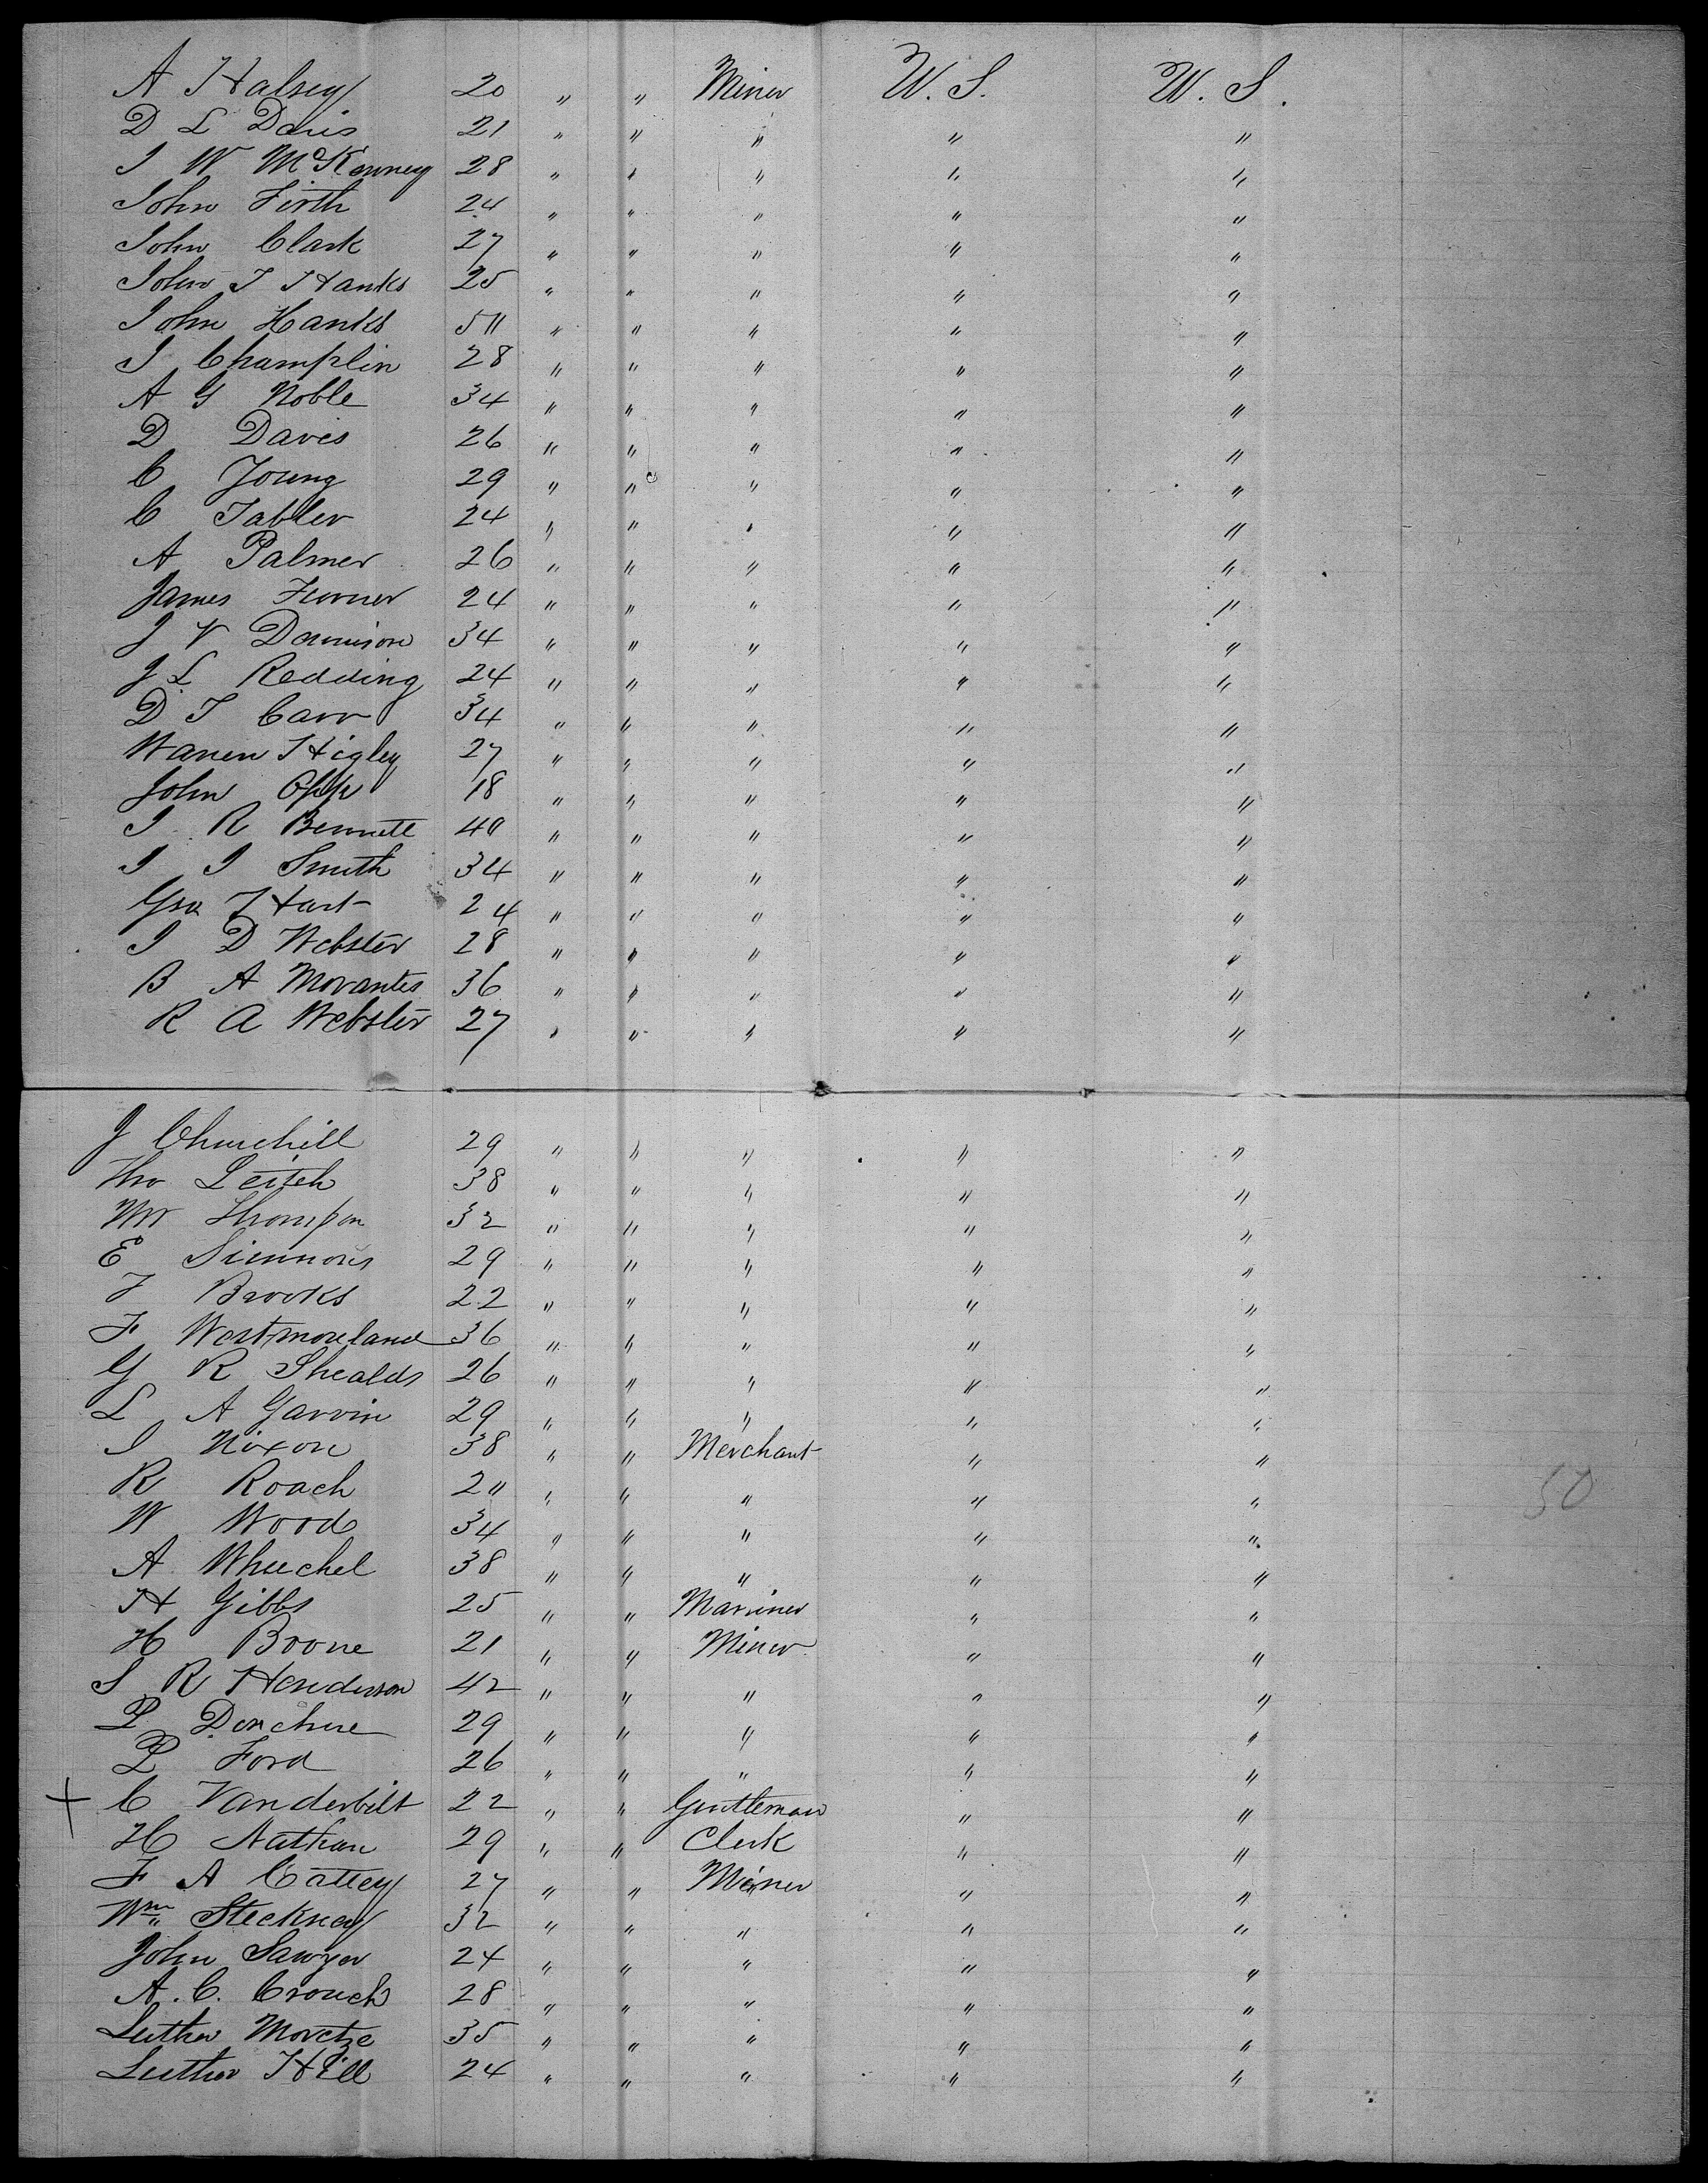 A Halsey 20 " " Miner U. S. U. S.
D L Davis 21 " " " " "
J W McKenney 28 " " " " "
John Firth 24 " " " " "
John Clark 27 " " " " "
John T Hanks 25 " " " " "
John Hanks 50 " " " " "
J Champlin 28 " " " " "
A G Noble 34 " " " " "
D Davis 26 " " " " "
C Young 29 " " " " "
C Tabler 24 " " " " "
A Palmer 26 " " " " "
James Turner 24 " " " " "
J V Dennison 34 " " " " "
J L Redding 24 " " " " "
D T Carr 34 " " " " "
Warren Higley 27 " " " " "
John Opp 18 " " " " "
J R Bennett 40 " " " " "
J J Smith 34 " " " " "
Geo Hart 24 " " " " "
J D Webster 28 " " " " "
B A Morantes 36 " " " " "
R A Webster 27 " " " " "
J Churchill 29 " " " " "
Tho Leitch 38 " " " " "
Thompson 32 " " " " "
E Simmons 29 " " " " "
T Brooks 22 " " " " "
F Westmoreland 36 " " " " "
G R Shealds 26 " " " " "
L A Garvin 29 " " " " "
J Nixon 38 " " Merchant " "
R Roach 20 " " " " "
W Wood 34 " " " " " 50
A Wheechel 38 " " " " "
H Gibbs 25 " " Marriner " "
H Boone 21 " " Miner " "
S R Henderson 42 " " " " "
P Donchue 29 " " " " "
P Ford 26 " " " " "
+ C Vanderbilt 22 " " Gentleman " "
H Nathan 29 " " Clerk " "
F A Cattey 27 " " Miner " "
Wm Steckney 32 " " " " "
John Sawyer 24 " " " " "
A. C. Crouch 28 " " " " "
Luther Moretze 35 " " " " "
Luther Hill 24 " " " " "